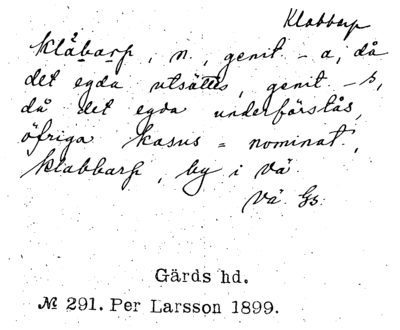 Klabbarp
Klåbarp, n., genit. -a, då
det egda utsättes, genit -s,
då det egda underförstås,
öfriga kasus = nominat.,
Klabbarp, by i Vä.
Vä. Gs.
Gärds hd.
№ 291. Per Larsson 1899.